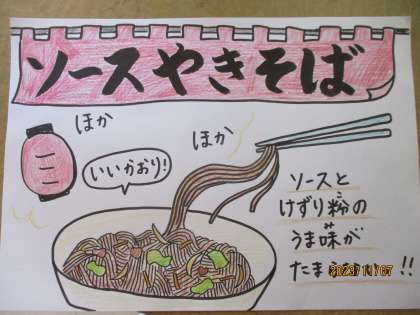 ソースやきそば
ほか
ほか
いいかおり!
ソースと
けずり粉の
うま味が
たま
!!
2023/11/07